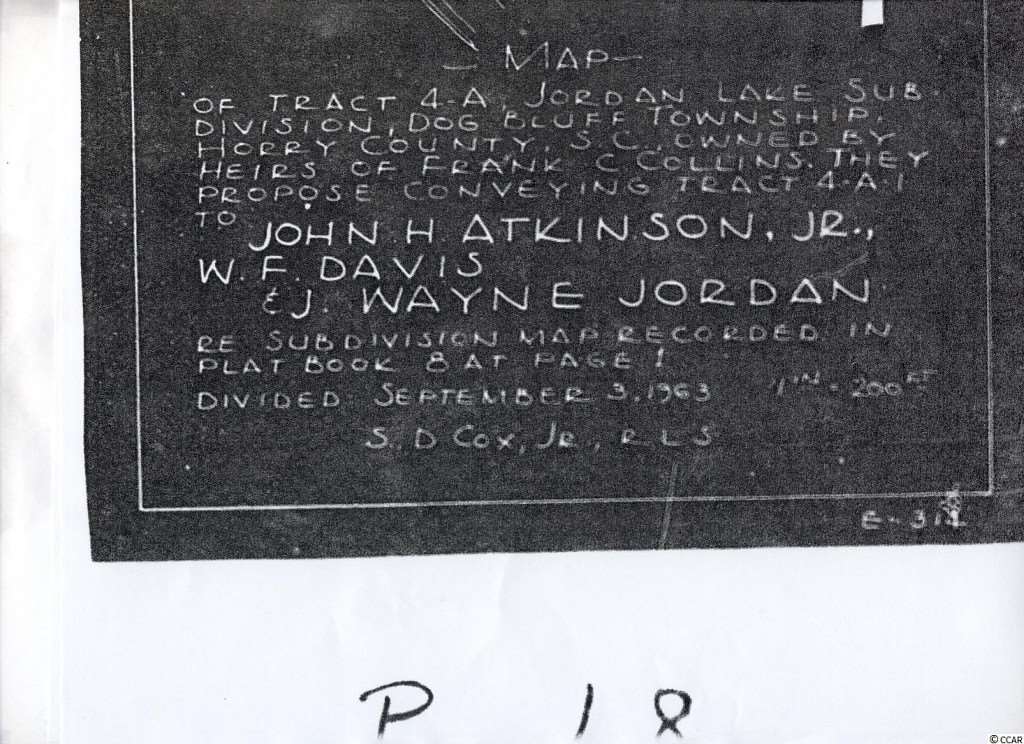 — MAP —
OF TRACT 4-A, JORDAN LAKE SUB-
DIVISION, DOG BLUFF TOWNSHIP,
HORRY COUNTY, S.C., OWNED BY
HEIRS OF FRANK C COLLINS. THEY
PROPOSE CONVEYING TRACT 4-A-1
TO
JOHN H. ATKINSON, JR.,
W. F. DAVIS
& J. WAYNE JORDAN.
RE SUBDIVISION MAP RECORDED IN
PLAT BOOK 8 AT PAGE 1
DIVIDED SEPTEMBER 3, 1963 1 IN - 200 FT
S. D COX, JR., R L S
E-312
P 18
© CCAR